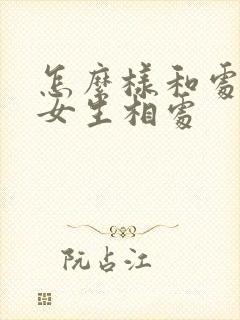 怎麼樣和處
女生相處
阮占江